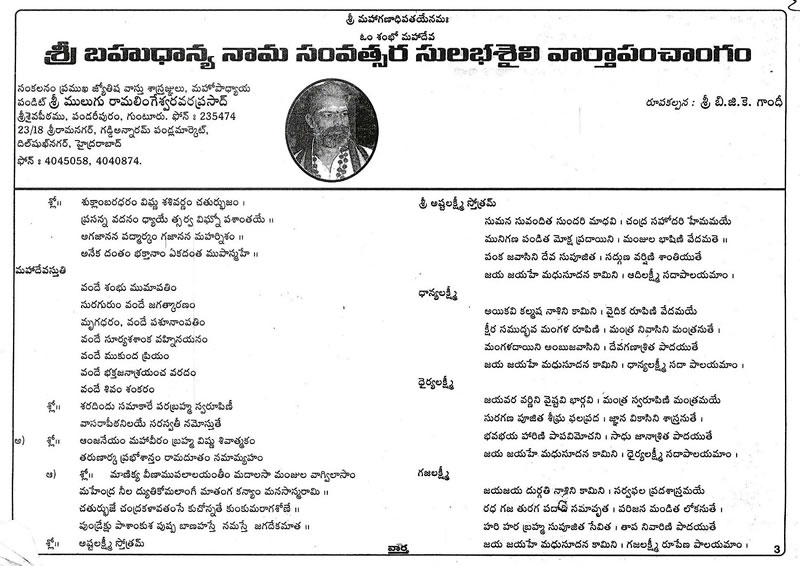 శ్రీ మహాగణాధిపతయేనమః
ఓం శంభో మహాదేవ
శ్రీ బహుధాన్య నామ సంవత్సర సులభశైలి వార్తాపంచాంగం
సంకలనం ప్రముఖ జ్యోతిష వాస్తు శాస్త్రజ్ఞులు, మహోపాధ్యాయ
పండిట్ శ్రీ ములుగు రామలింగేశ్వరవరప్రసాద్
శ్రీశైవపీఠము, పండరీపురం, గుంటూరు. ఫోన్ : 235474
23/18 శ్రీరామనగర్, గడ్డిఅన్నారమ్ పండ్లమార్కెట్,
దిల్‌షుఖ్‌నగర్, హైద్రాబాద్
ఫోన్ : 4045058, 4040874.
రూపకల్పన : శ్రీ బి.జి.కె. గాంధీ
శ్లో॥ శుక్లాంబరధరం విష్ణు శశివర్ణం చతుర్భుజం ।
ప్రసన్న వదనం ధ్యాయే త్సర్వ విఘ్నో పశాంతయే ॥
అగజానన పద్మార్కం గజానన మహర్నిశం ।
అనేక దంతం భక్తానాం ఏకదంత ముపాస్మహే ॥
మహాదేవస్తుతి
వందే శంభు ముమాపతిం
సురగురుం వందే జగత్కారణం
మృగధరం, వందే పశూనాంపతిం
వందే సూర్యశశాంక వహ్నినయనం
వందే ముకుంద ప్రియం
వందే భక్తజనాశ్రయంచ వరదం
వందే శివం శంకరం
శ్లో॥ శరదిందు సమాకారే పరబ్రహ్మ స్వరూపిణీ
వాసరాపీఠనిలయే సరస్వతీ నమోస్తుతే
అ) శ్లో॥ ఆంజనేయం మహావీరం బ్రహ్మ విష్ణు శివాత్మకం
తరుణార్క ప్రభోశాన్తం రామదూతం నమామ్యహం
ఆ) శ్లో॥ మాణిక్య వీణాముపలాలయంతీం మదాలసా మంజుల వాగ్విలాసాం
మహేంద్ర నీల ద్యుతికోమలాంగీ మాతంగ కన్యాం మనసాస్మరామి ॥
చతుర్భుజే చంద్రకళావతంసే కుచోన్నతే కుంకుమరాగశోణే ॥
పుండ్రేక్షు పాశాంకుశ పుష్ప బాణహస్తే నమస్తే జగదేకమాత ॥
శ్లో॥ అష్టలక్ష్మీ స్తోత్రమ్
శ్రీ అష్టలక్ష్మీ స్తోత్రమ్
సుమన సువందిత సుందరి మాధవి । చంద్ర సహోదరి హేమమయే
మునిగణ పండిత మోక్ష ప్రదాయిని । మంజుల భాషిణి వేదమతె ॥
పంక జవాసిని దేవ సుపూజిత । సద్గుణ వర్షిణి శాంతియుతే
జయ జయహే మధుసూదన కామిని । ఆదిలక్ష్మీ సదాపాలయమాం ।
ధాన్యలక్ష్మీ
అయికవి కల్మష నాశిని కామిని । వైదిక రూపిణి వేదమయే
క్షీర సముద్భవ మంగళ రూపిణి । మంత్ర నివాసిని మంత్రనుతే ।
మంగళదాయిని అంబుజవాసిని । దేవగణాశ్రిత పాదయుతే
జయ జయహే మధుసూదన కామిని । ధాన్యలక్ష్మీ సదా పాలయమాం ।
ధైర్యలక్ష్మీ
జయవర వర్ణిని వైష్ణవి భార్గవి । మంత్ర స్వరూపిణి మంత్రమయే
సురగణ పూజిత శీఘ్ర ఫలప్రద । జ్ఞాన వికాసిని శాస్త్రనుతే ।
భవభయ హారిణి పాపవిమోచని । సాధు జానాశ్రిత పాదయుతే
జయ జయహే మధుసూదన కామిని । ధైర్యలక్ష్మీ సదాపాలయమాం ।
గజలక్ష్మీ
జయజయ దుర్గతి నాశిని కామిని । సర్వఫల ప్రదశాస్త్రమయే
రధ గజ తురగ పదాతి సమావృత । పరిజన మండిత లోకనుతే ।
హరి హర బ్రహ్మ సుపూజిత సేవిత । తాప నివారిణి పాదయుతే
జయ జయహే మధుసూదన కామిని । గజలక్ష్మీ రూపేణ పాలయమాం ।
వార్త
3